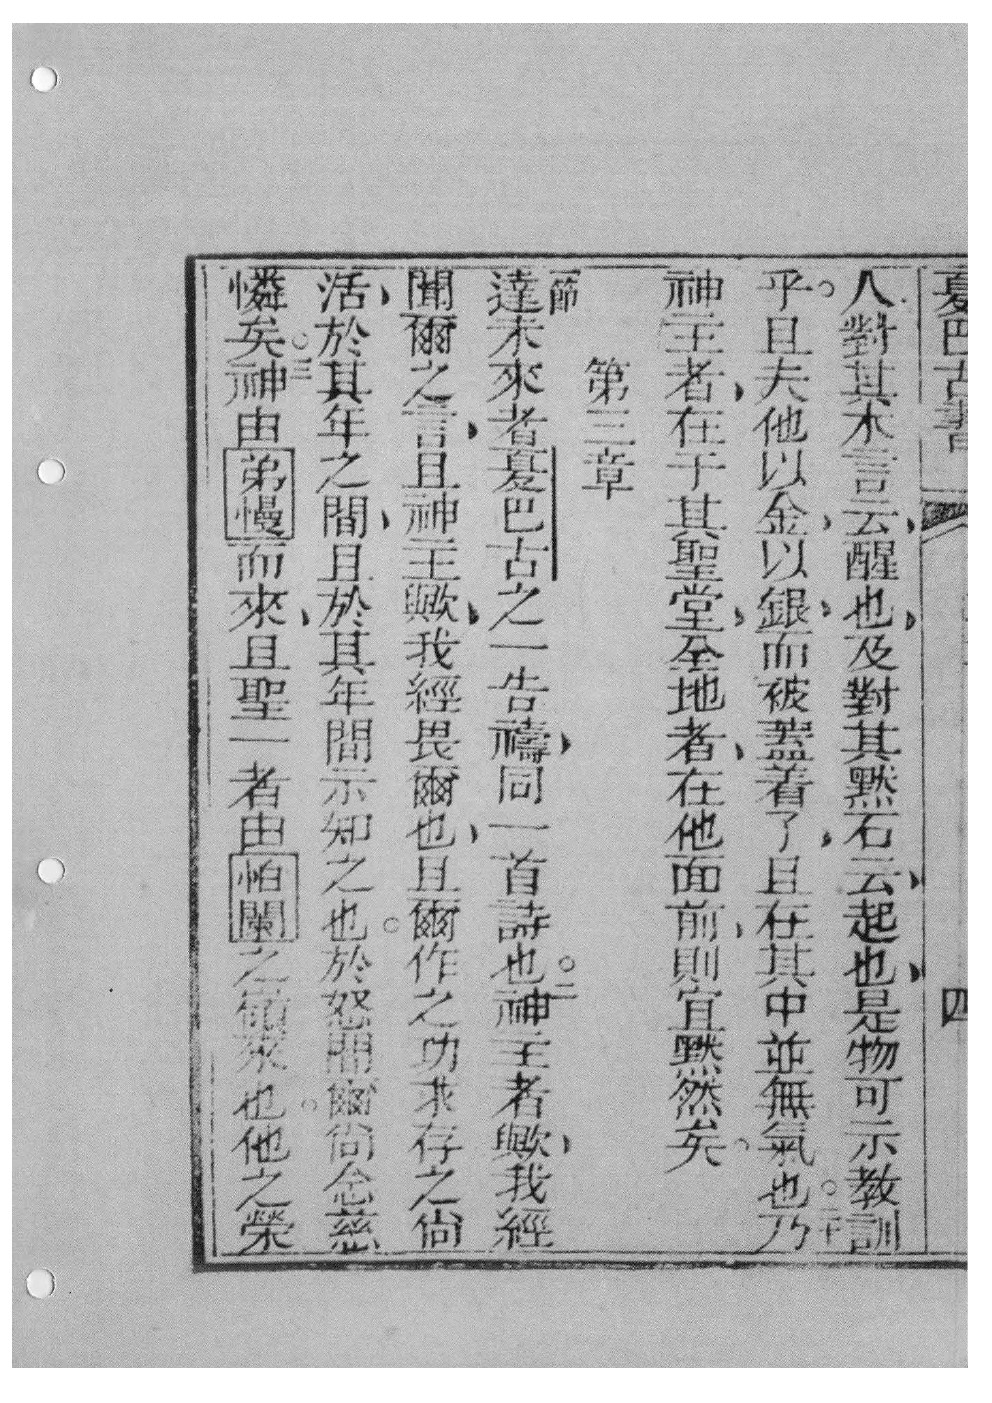 夏巴古書 四
人對其木言云醒也及對其黙石云起也是物可示教訓
乎。且夫他以金以銀而被蓋着了且在其中並無氣也。二十乃
神主者在于其聖堂全地者在他面前則宜黙然矣。
第三章
一節達未來者夏巴古之一告禱同一首詩也。二神主者歟我經
聞爾之言且神主歟我經畏爾也且爾作之功求存之尙
活於其年之間且於其年間示知之也。於怒間爾尙念慈
憐矣。三神由弟慢而來且聖一者由怕闌之嶺來也。他之榮